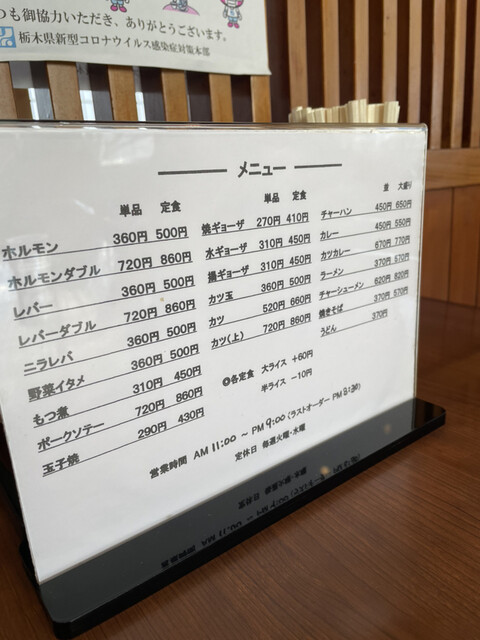 つも御協力いただき、ありがとうございます。
栃木県新型コロナウイルス感染症対策本部
メニュー
単品 定食
ホルモン 360円 500円
ホルモンダブル 720円 860円
レバー 360円 500円
レバーダブル 720円 860円
ニラレバ 360円 500円
野菜イタメ 360円 500円
もつ煮 310円 450円
ポークソテー 720円 860円
玉子焼 290円 430円
単品 定食
焼ギョーザ 270円 410円
水ギョーザ 310円 450円
揚ギョーザ 310円 450円
カツ玉 360円 500円
カツ 520円 660円
カツ(上) 720円 860円
並 大盛り
チャーハン 450円 650円
カレー 450円 550円
カツカレー 670円 770円
ラーメン 370円 570円
チャーシューメン 620円 820円
焼きそば 370円 570円
うどん 370円
◎各定食 大ライス +60円
半ライス −10円
営業時間 AM 11:00 ～ PM 9:00 (ラストオーダー PM 8:30)
定休日 毎週火曜・水曜